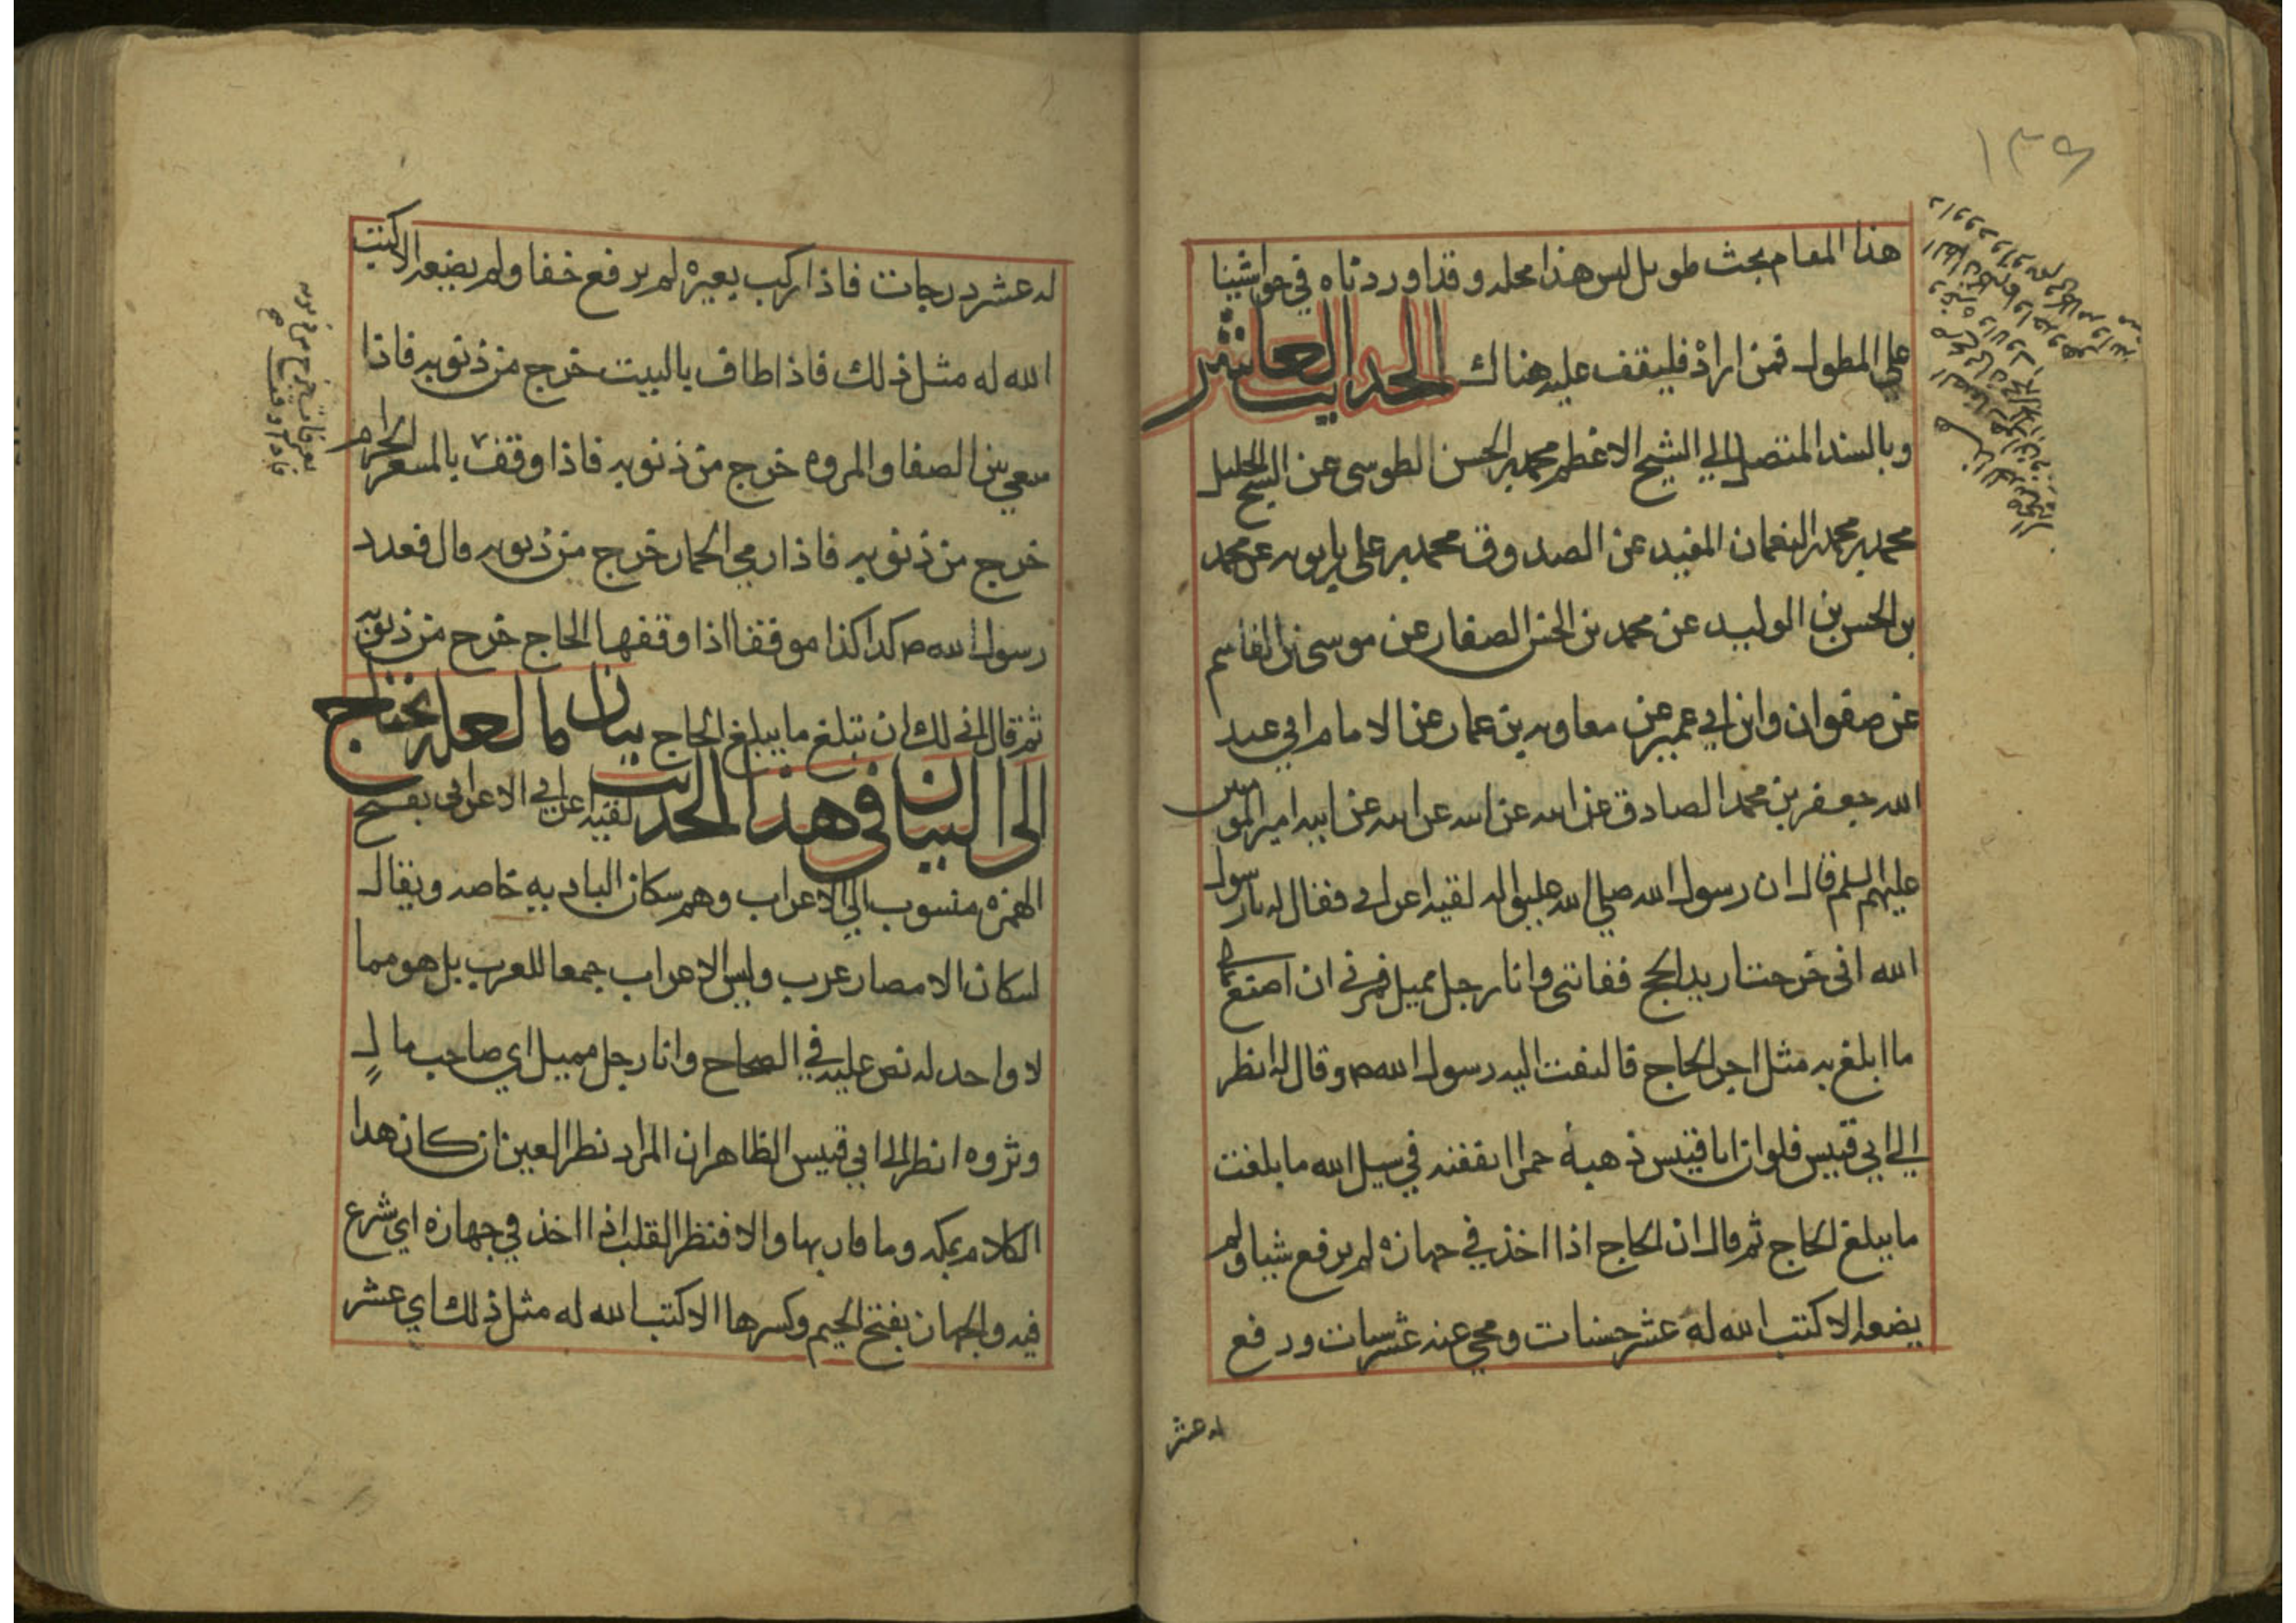 ١٣٩
هذا المقام بحث طويل ليس هذا محله وقد اوردناه في حواشينا
على المطول فمن اراد فليقف عليه هناك الحديث العاشر
وبالسند المتصل الى الشيخ الاعظم محمد بن الحسن الطوسي عن الشيخ الجليل
محمد بن محمد بن النعمان المفيد عن الصدوق محمد بن علي بن بابويه عن محمد
بن الحسن بن الوليد عن محمد بن الحسن الصفار عن موسى بن القاسم
عن صفوان وابن ابي عمير عن معاويه بن عمار عن الامام ابي عبد
الله جعفر بن محمد الصادق عن ابيه عن ابيه عن ابيه عن ابيه امير المومنين
عليهم السلم قال ان رسول الله صلى الله عليه واله لقيه اعرابي فقال له يا رسول
الله اني خرجت اريد الحج ففاتني وانا رجل مميل فمرني ان اصنع في مالي
ما ابلغ به مثل اجر الحاج قال فالتفت اليه رسول الله ص وقال له انظر
الى ابي قبيس فلو ان ابا قبيس ذهبة حمرا انفقته في سبيل الله ما بلغت
ما يبلغ الحاج ثم قال ان الحاج اذا اخذ في جهازه لم يرفع شيا ولم
يضعه الا كتب الله له عشر حسنات ومحي عنه عشر سيات ورفع
له عشر
له عشر درجات فاذا ركب بعيره لم يرفع خفا ولم يضعه الا كتب
الله له مثل ذلك فاذا طاف بالبيت خرج من ذنوبه فاذا
سعى بين الصفا والمروه خرج من ذنوبه فاذا وقف بالمشعر الحرام
خرج من ذنوبه فاذا رمي الجمار خرج من ذنوبه قال فعدد
رسول الله ص كذا كذا موقفا اذا وقفها الحاج خرج من ذنوبه
ثم قال اني لك ان تبلغ ما يبلغ الحاج بيان ما لعله يحتاج
الى البيان في هذا الحديث لقيه اعرابي الاعرابي بفتح
الهمزه منسوب الى الاعراب وهم سكان الباديه خاصه ويقال
لسكان الامصار عرب وليس الاعراب جمعا للعرب بل هو مما
لا واحد له نص عليه في الصحاح وانا رجل مميل اي صاحب مال
وثروه انظر الى ابي قبيس الظاهر ان المراد نظر العين ان كان هذا
الكلام بمكه وما قاربها والا فنظر القلب اذا اخذ في جهازه اي شرع
فيه والجهاز بفتح الجيم وكسرها الا كتب الله له مثل ذلك اي عشر
فاذا وقف
بعرفات خرج من ذنوبه